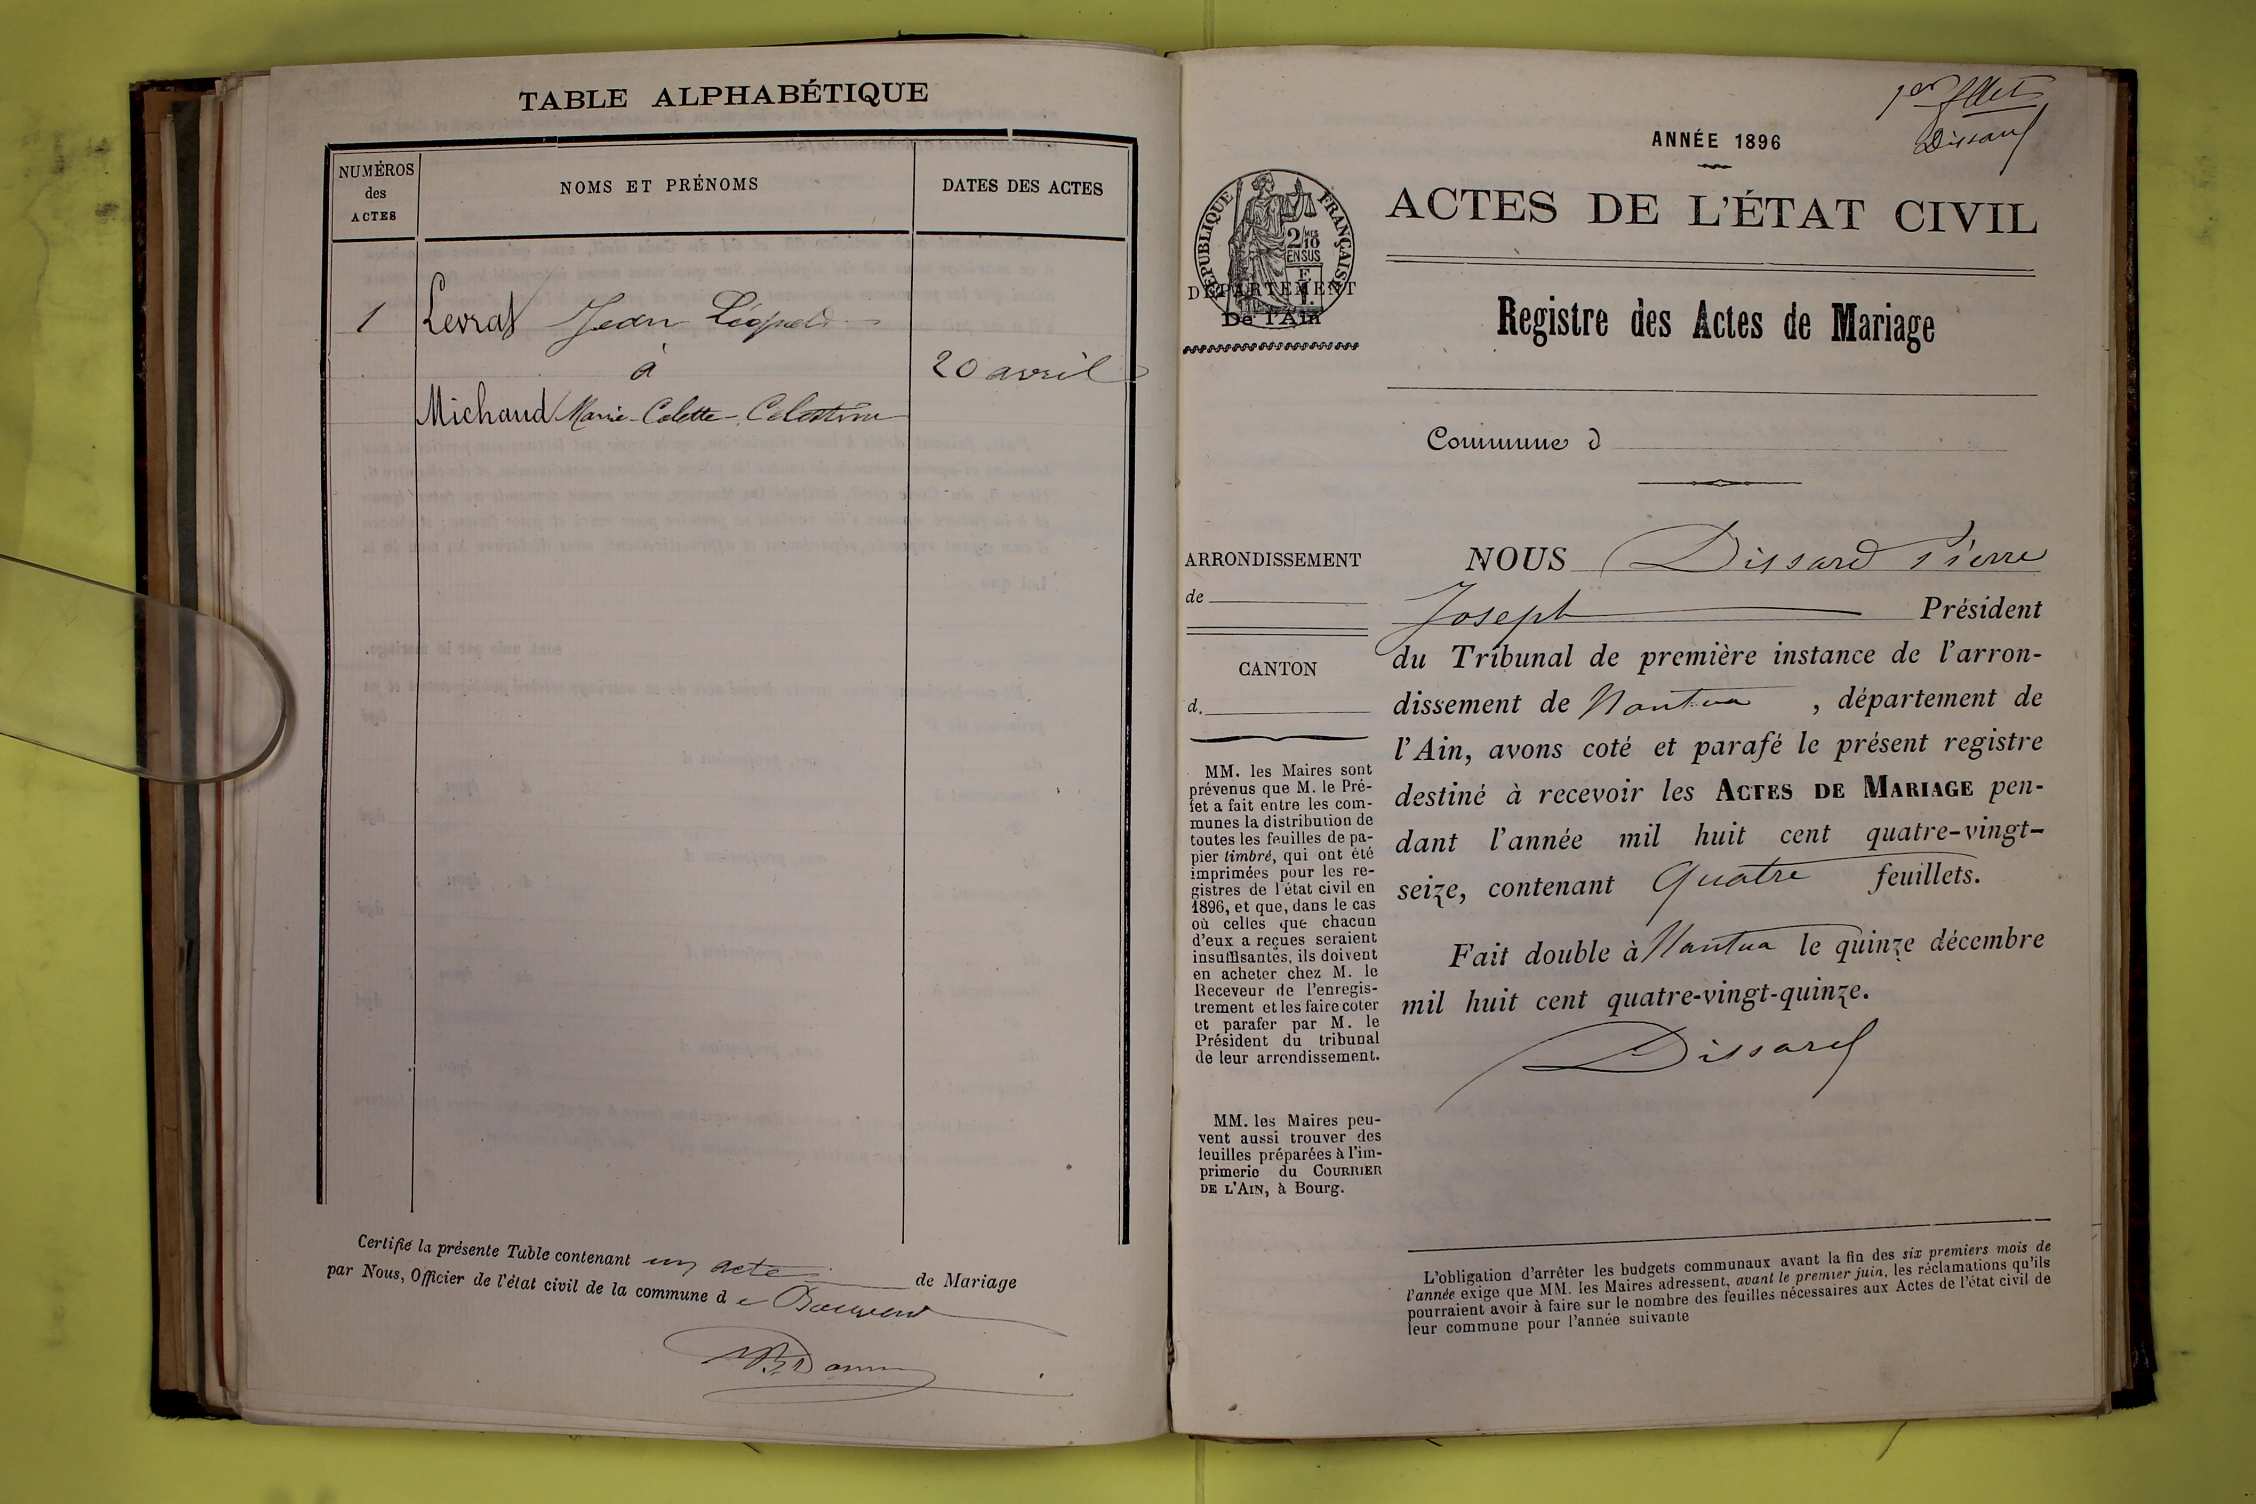 TABLE ALPHABÉTIQUE
NUMÉROS
des
ACTES
NOMS ET PRÉNOMS
DATES DES ACTES
1
Levrat Jean Léopold
à
20 avril
Michaud Marie-Colette-Célestine
Certifié la présente Table contenant un acte de Mariage
par Nous, Officier de l'état civil de la commune de
1er fllet
Dissard
ANNÉE 1896
ACTES DE L'ÉTAT CIVIL
RÉPUBLIQUE FRANÇAISE
2/10
EN SUS
DÉPARTEMENT
De l'Ain
Registre des Actes de Mariage
Commune d
ARRONDISSEMENT
de
CANTON
d.
MM. les Maires sont
prévenus que M. le Pré-
fet a fait entre les com-
munes la distribution de
toutes les feuilles de pa-
pier timbré, qui ont été
imprimées pour les re-
gistres de l'état civil en
1896, et que, dans le cas
où celles que chacun
d'eux a reçues seraient
insuffisantes, ils doivent
en acheter chez M. le
Receveur de l'enregis-
trement et les faire coter
et parafer par M. le
Président du tribunal
de leur arrondissement.
MM. les Maires peu-
vent aussi trouver des
feuilles préparées à l'im-
primerie du COURRIER
DE L'AIN, à Bourg.
NOUS Dissard Pierre
Joseph Président
du Tribunal de première instance de l'arron-
dissement de Nantua , département de
l'Ain, avons coté et parafé le présent registre
destiné à recevoir les ACTES DE MARIAGE pen-
dant l'année mil huit cent quatre-vingt-
seize, contenant Quatre feuillets.
Fait double à Nantua le quinze décembre
mil huit cent quatre-vingt-quinze.
Dissard
L'obligation d'arrêter les budgets communaux avant la fin des six premiers mois de
l'année exige que MM. les Maires adressent, avant le premier juin, les réclamations qu'ils
pourraient avoir à faire sur le nombre des feuilles nécessaires aux Actes de l'état civil de
leur commune pour l'année suivante